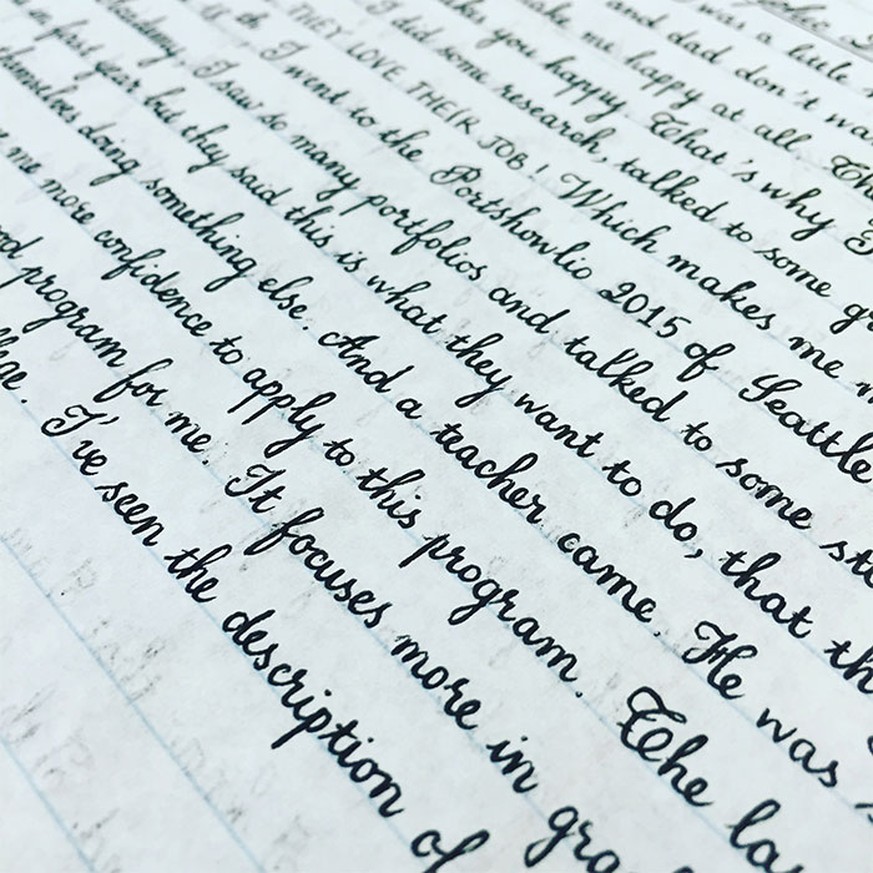 was a little
and dad don't
make me happy at all.
you happy That's why I
I did some research, talked to some
THEY LOVE THEIR JOB! Which makes me
I went to the Portshowlio 2015 of Seattle
I saw so many portfolios and talked to some
first year but they said this is what they want to do, that
themselves doing something else. And a teacher came. He was
me more confidence to apply to this program. The
program for me. It focuses more in
I've seen the description of